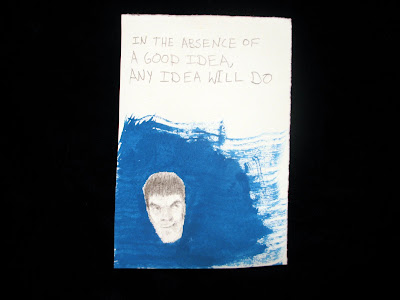 IN THE ABSENCE OF
A GOOD IDEA,
ANY IDEA WILL DO